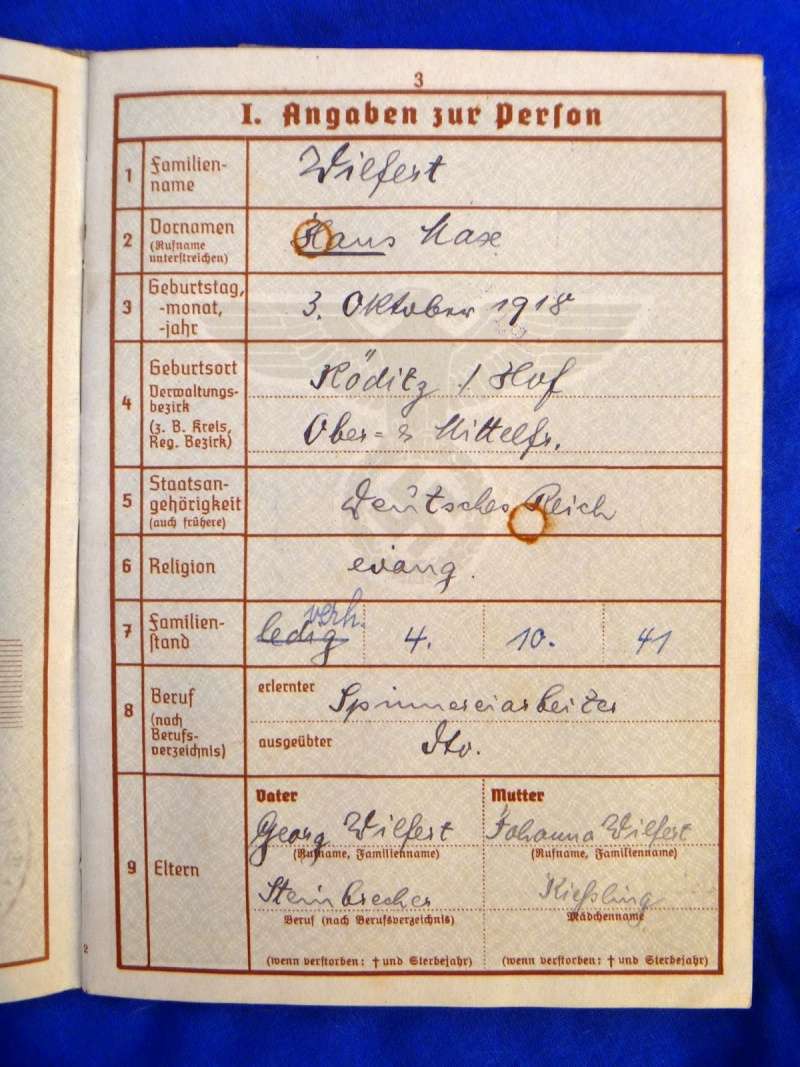 3
I. Angaben zur Person
1 Familien-
name
Wilfert
2 Vornamen
(Rufname
unterstreichen)
Hans Max
3 Geburtstag,
-monat,
-jahr
3. Oktober 1918
4 Geburtsort
Verwaltungs-
bezirk
(z. B. Kreis,
Reg. Bezirk)
Köditz / Hof
Ober- & Mittelfr.
5 Staatsan-
gehörigkeit
(auch frühere)
Deutsches Reich
6 Religion
evang.
7 Familien-
stand
ledig verh. 4. 10. 41
8 Beruf
(nach
Berufs-
verzeichnis)
erlernter Spinnereiarbeiter
ausgeübter dto.
9 Eltern
Vater
Georg Wilfert
(Rufname, Familienname)
Steinbrecher
Beruf (nach Berufsverzeichnis)
(wenn verstorben: † und Sterbejahr)
Mutter
Johanna Wilfert
(Rufname, Familienname)
Kießling
Mädchenname
(wenn verstorben: † und Sterbejahr)
2